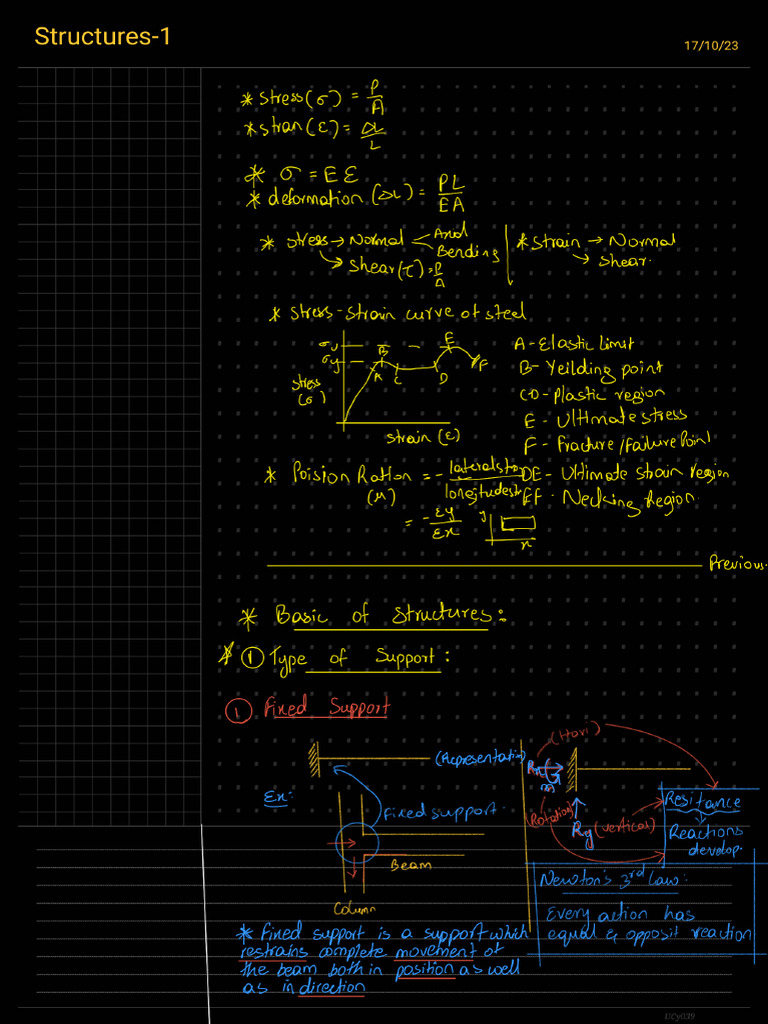 Structures-1
17/10/23
* Stress(σ) = P/A
* Stran(ε) = ΔL/L
* σ = E ε
* deformation (ΔL) = PL/EA
* stress → Normal < Axial
Bending
→ Shear(τ) = P/A
* Strain → Normal
→ Shear.
* Stress-strain curve of steel
σu
σy
B
E
A
C
D
F
Stress
(σ)
strain (ε)
A-Elastic Limit
B- Yeilding point
CD-Plastic region
E - Ultimate stress
F - Fracture/Failure Point
DE- Ultimate strain region
EF - Necking Region.
* Poision Ration = - lateral
(μ) longitudest
= - εy/εx
y
x
Previous.
* Basic of Structures:
* ① Type of Support:
① Fixed Support
(Representation)
Ex:
Fixed support.
Beam
Column
(Hori)
Rx
m
(Rotation)
Ry (vertical)
Resistance
Reactions
develop.
Newton's 3rd Law:
Every action has
equal & opposit reaction
* Fixed support is a support which
restrains complete movement of
the beam both in position as well
as in direction
UCy039